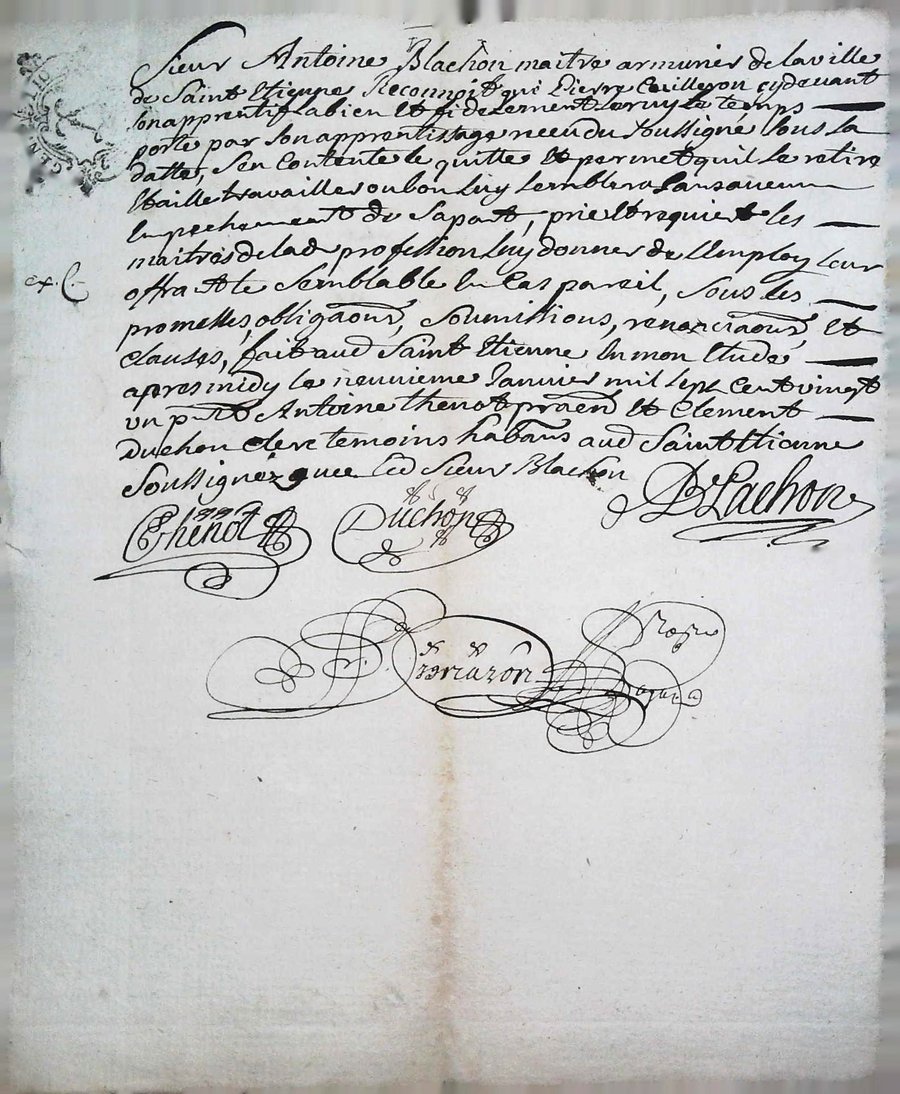 Sieur Antoine Blachon maitre armurier de la ville
de Saint Etienne Reconnoit qui Pierre Cuilleron cydevant
son apprentif a bien Et fidelement servy le temps
porté par son apprentissage receu du soussigné sous sa
datte, s'en Contente le quitte Et permet quil se retire
Et aille travailler ou bon luy semblera sans aucun
Empechement de sa part, prie Et requiert les
maitres de lad profession luy donner de l'Employ leur
offrant le semblable En Cas pareil, sous les
promesses, obligaons, soumissions, renonciaons, Et
clauses, fait aud Saint Etienne En mon Etude
apres midy le neuvieme Janvier mil sept Cent vingt
un pnt Antoine thenot praen Et Clement
Duchon clerc temoins habans aud Saint Etienne
Soussignéz avec led Sieur Blachon
ex. C.
Thenot Duchon Blachon